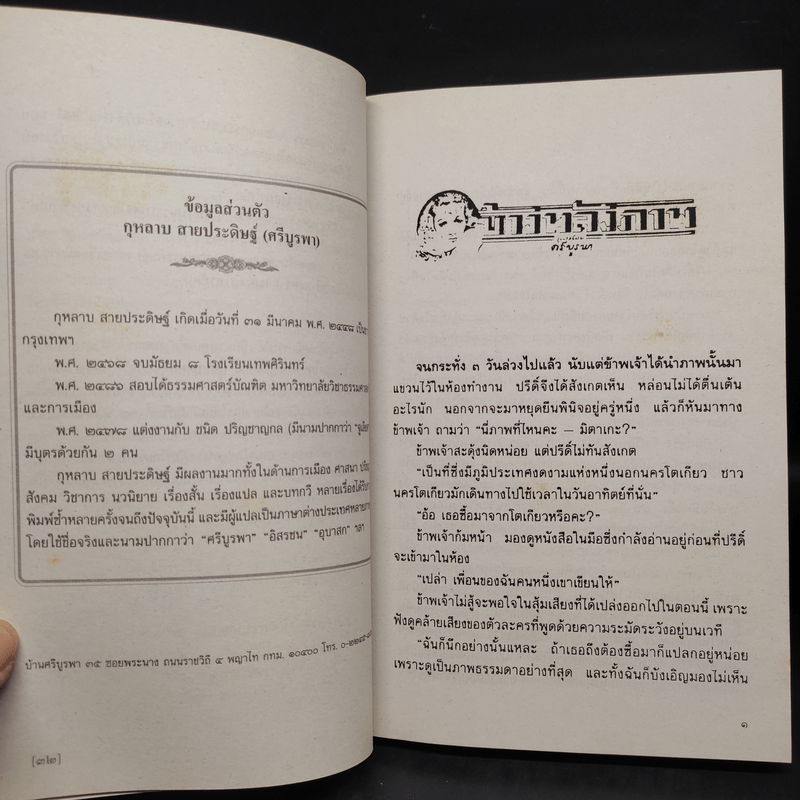 ข้อมูลส่วนตัว
กุหลาบ สายประดิษฐ์ (ศรีบูรพา)
กุหลาบ สายประดิษฐ์ เกิดเมื่อวันที่ ๓๑ มีนาคม พ.ศ. ๒๔๔๘
กรุงเทพฯ
พ.ศ. ๒๔๖๘ จบมัธยม ๘ โรงเรียนเทพศิรินทร์
พ.ศ. ๒๔๘๖ สอบได้ธรรมศาสตร์บัณฑิต มหาวิทยาลัยวิชาธรรมศาส
และการเมือง
พ.ศ. ๒๔๗๘ แต่งงานกับ ชนิด ปริญชาญกล (มีนามปากกาว่า
มีบุตรด้วยกัน ๒ คน
กุหลาบ สายประดิษฐ์ มีผลงานมากทั้งในด้านการเมือง ศาสนา
สังคม วิชาการ นวนิยาย เรื่องสั้น เรื่องแปล และบทกวี หลายเรื่องได้รับ
พิมพ์ซ้ำหลายครั้งจนถึงปัจจุบันนี้ และมีผู้แปลเป็นภาษาต่างประเทศหลาย
โดยใช้ชื่อจริงและนามปากกาว่า “ศรีบูรพา” “อิสรชน” “อุบาสก” ฯลฯ
บ้านศรีบูรพา ๓๕ ซอยพระนาง ถนนราชวิถี ๔ พญาไท กทม. ๑๐๔๐๐ โทร.
[๓๒]
ข้างหลังภาพ
ศรีบูรพา
จนกระทั่ง ๓ วันล่วงไปแล้ว นับแต่ข้าพเจ้าได้นำภาพนั้นมา
แขวนไว้ในห้องทำงาน ปรีดิ์จึงได้สังเกตเห็น หล่อนไม่ได้ตื่นเต้น
อะไรนัก นอกจากจะมาหยุดยืนพินิจอยู่ครู่หนึ่ง แล้วก็หันมาทาง
ข้าพเจ้า ถามว่า “นี่ภาพที่ไหนคะ – มิตาเกะ?”
ข้าพเจ้าสะดุ้งนิดหน่อย แต่ปรีดิ์ไม่ทันสังเกต
“เป็นที่ซึ่งมีภูมิประเทศงดงามแห่งหนึ่งนอกนครโตเกียว ชาว
นครโตเกียวมักเดินทางไปใช้เวลาในวันอาทิตย์ที่นั่น”
“อ้อ เธอซื้อมาจากโตเกียวหรือคะ?”
ข้าพเจ้าก้มหน้า มองดูหนังสือในมือซึ่งกำลังอ่านอยู่ก่อนที่ปรีดิ์
จะเข้ามาในห้อง
“เปล่า เพื่อนของฉันคนหนึ่งเขาเขียนให้”
ข้าพเจ้าไม่สู้จะพอใจในสุ้มเสียงที่ได้เปล่งออกไปในตอนนี้ เพราะ
ฟังดูคล้ายเสียงของตัวละครที่พูดด้วยความระมัดระวังอยู่บนเวที
“ฉันก็นึกอย่างนั้นแหละ ถ้าเธอถึงต้องซื้อมาก็แปลกอยู่หน่อย
เพราะดูเป็นภาพธรรมดาอย่างที่สุด และทั้งฉันก็บังเอิญมองไม่เห็น
๑